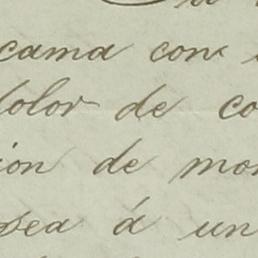 cama con
dolor de co
ión de mo
sea á un